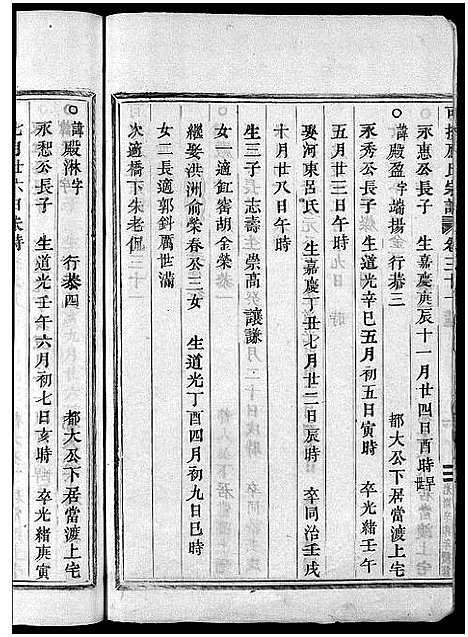 永惠公長子　生嘉慶庚辰十一月廿四日酉時
諱殿盈字端揚　行恭三　都大公下居當渡上宅
永秀公長子　生道光辛巳五月初五日寅時　卒光緒壬午
五月廿三日午時
娶河東呂氏　生嘉慶丁丑七月廿二日辰時　卒同治壬戌
十月廿八日午時
生三子　長志壽　崇高　讓謙
女一適缸窰胡全榮
繼娶洪洲俞榮春公三女　生道光丁酉四月初九日巳時
女二長適郭斜厲世滿
次適橋下朱老侃
諱殿淋字　行恭四　都大公下居當渡上宅
永恕公長子　生道光壬午六月初七日亥時　卒光緒庚寅
七月廿六日未時